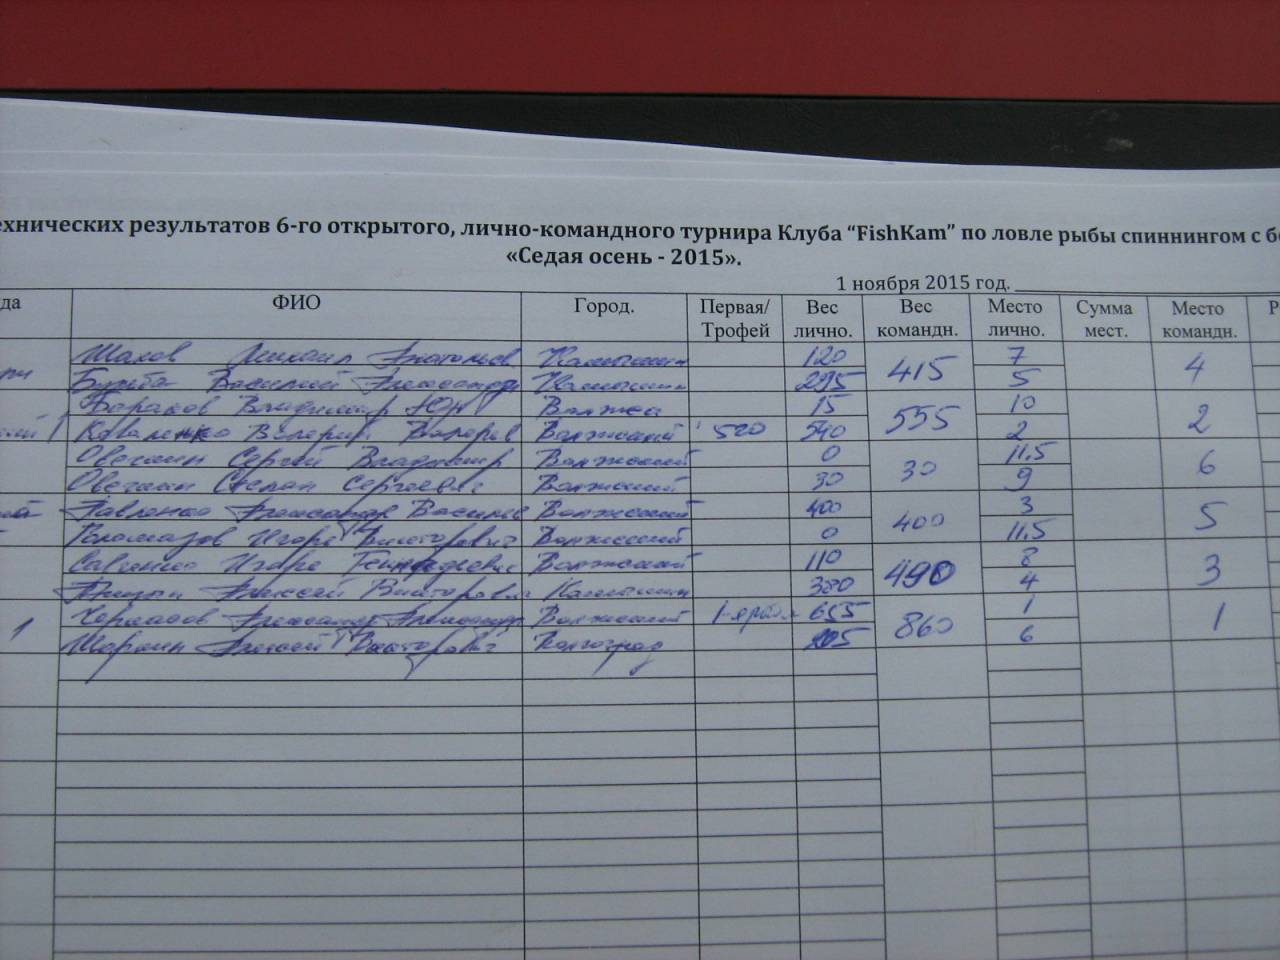 ехнических результатов 6-го открытого, лично-командного турнира Клуба “FishKam” по ловле рыбы спиннингом с бо
«Седая осень - 2015».
1 ноября 2015 год.
да ФИО Город. Первая/ Трофей Вес лично. Вес командн. Место лично. Сумма мест. Место командн. Р
Шахов Михаил Анатольев Камышин 120 415 7 4
Василий Александр Камышин 295 5
Владимир Юр Волжск 15 555 10 2
Коваленко Валерий Валерьев Волжский 520 540 2
Овечкин Сергей Владимир Волжский 0 30 11,5 6
Овечкин Степан Сергеевич Волжский 30 9
Павленко Александр Васильев Волжский 400 400 3 5
Игорь Викторович Волжский 0 11,5
Савченко Игорь Геннадьевич Волжский 110 490 8 3
Алексей Викторович Камышин 380 4
1 Александр Александр Волжский 1-я рыба 655 860 1 1
Шаркин Алексей Викторович Волгоград 205 6